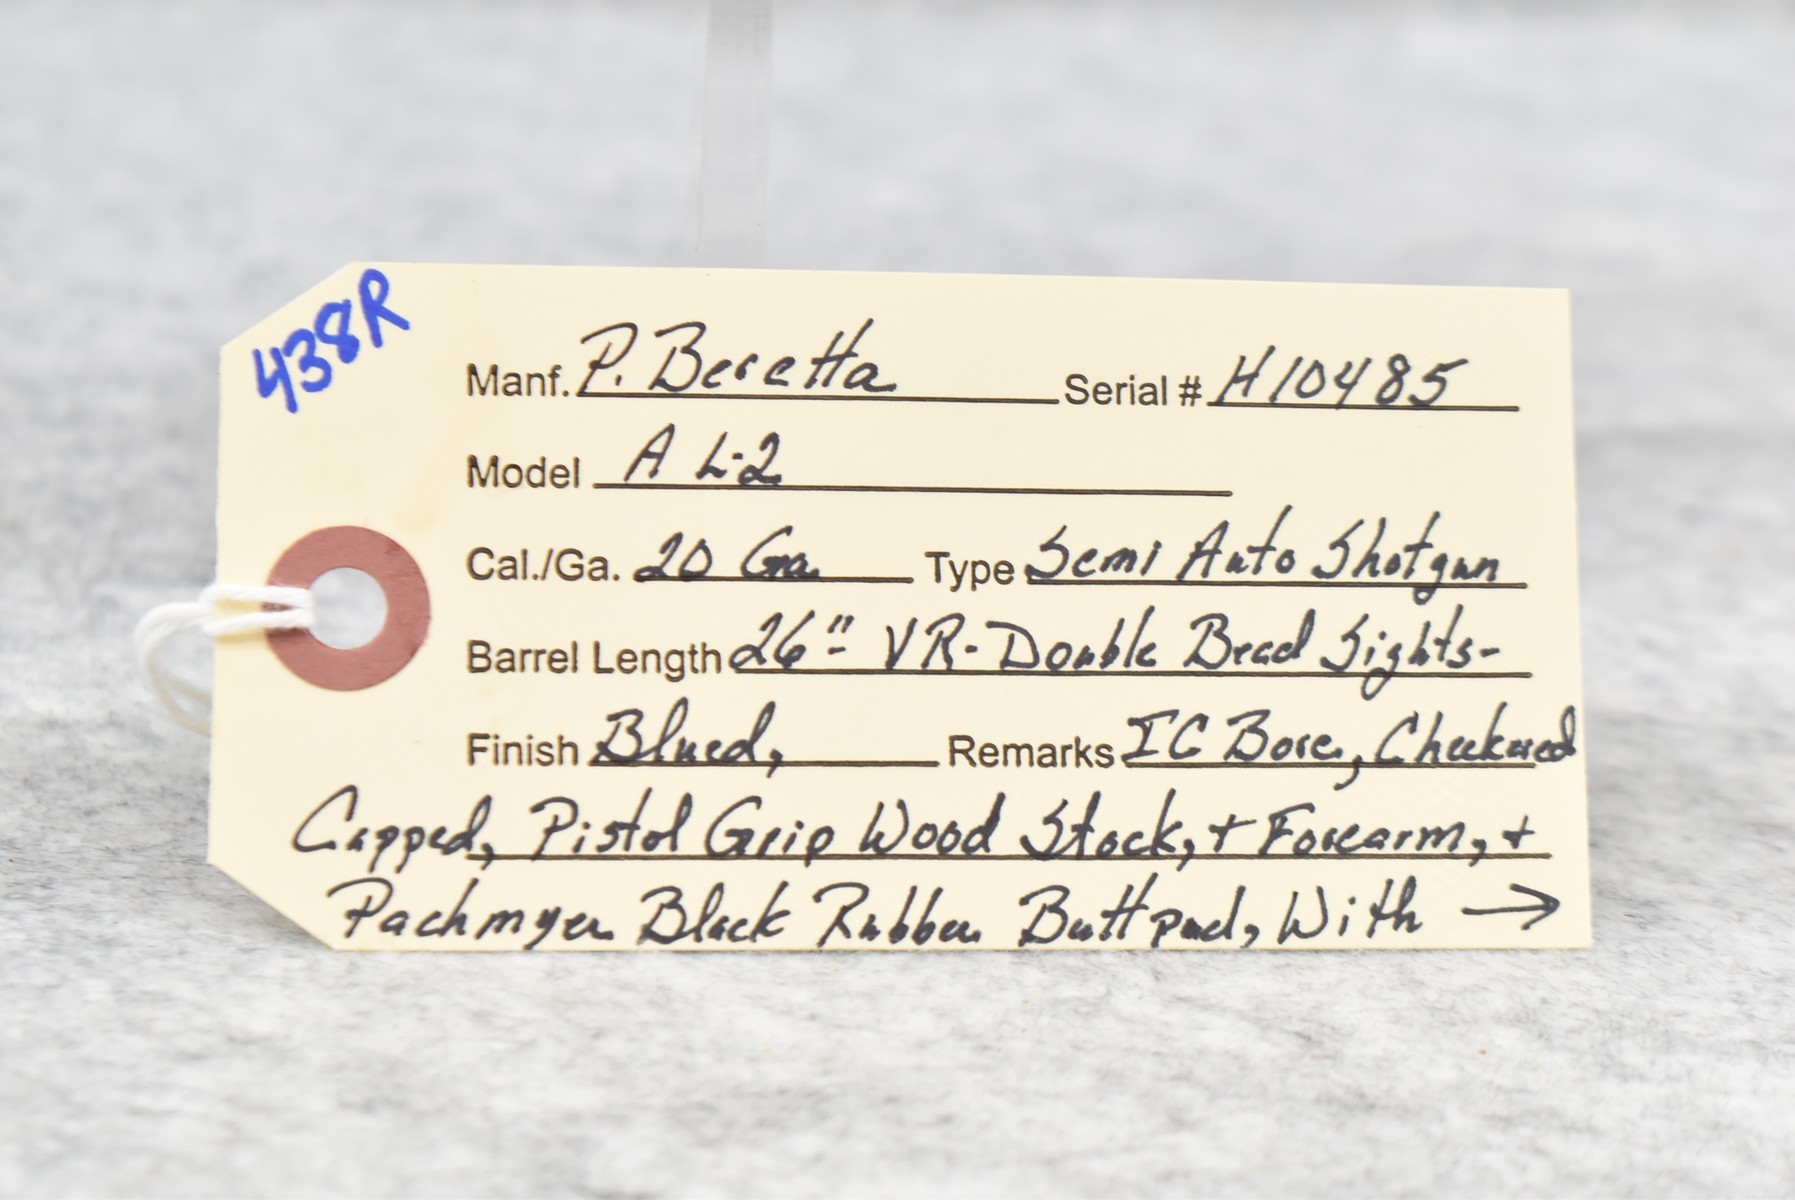 438R
Manf. P. Beretta Serial # H10485
Model A L-2
Cal./Ga. 20 Ga. Type Semi Auto Shotgun
Barrel Length 26" - VR - Double Bead Sights -
Finish Blued, Remarks IC Bore, Checkered
Capped, Pistol Grip Wood Stock, + Forearm, +
Pachmyer Black Rubber Buttpad, With →